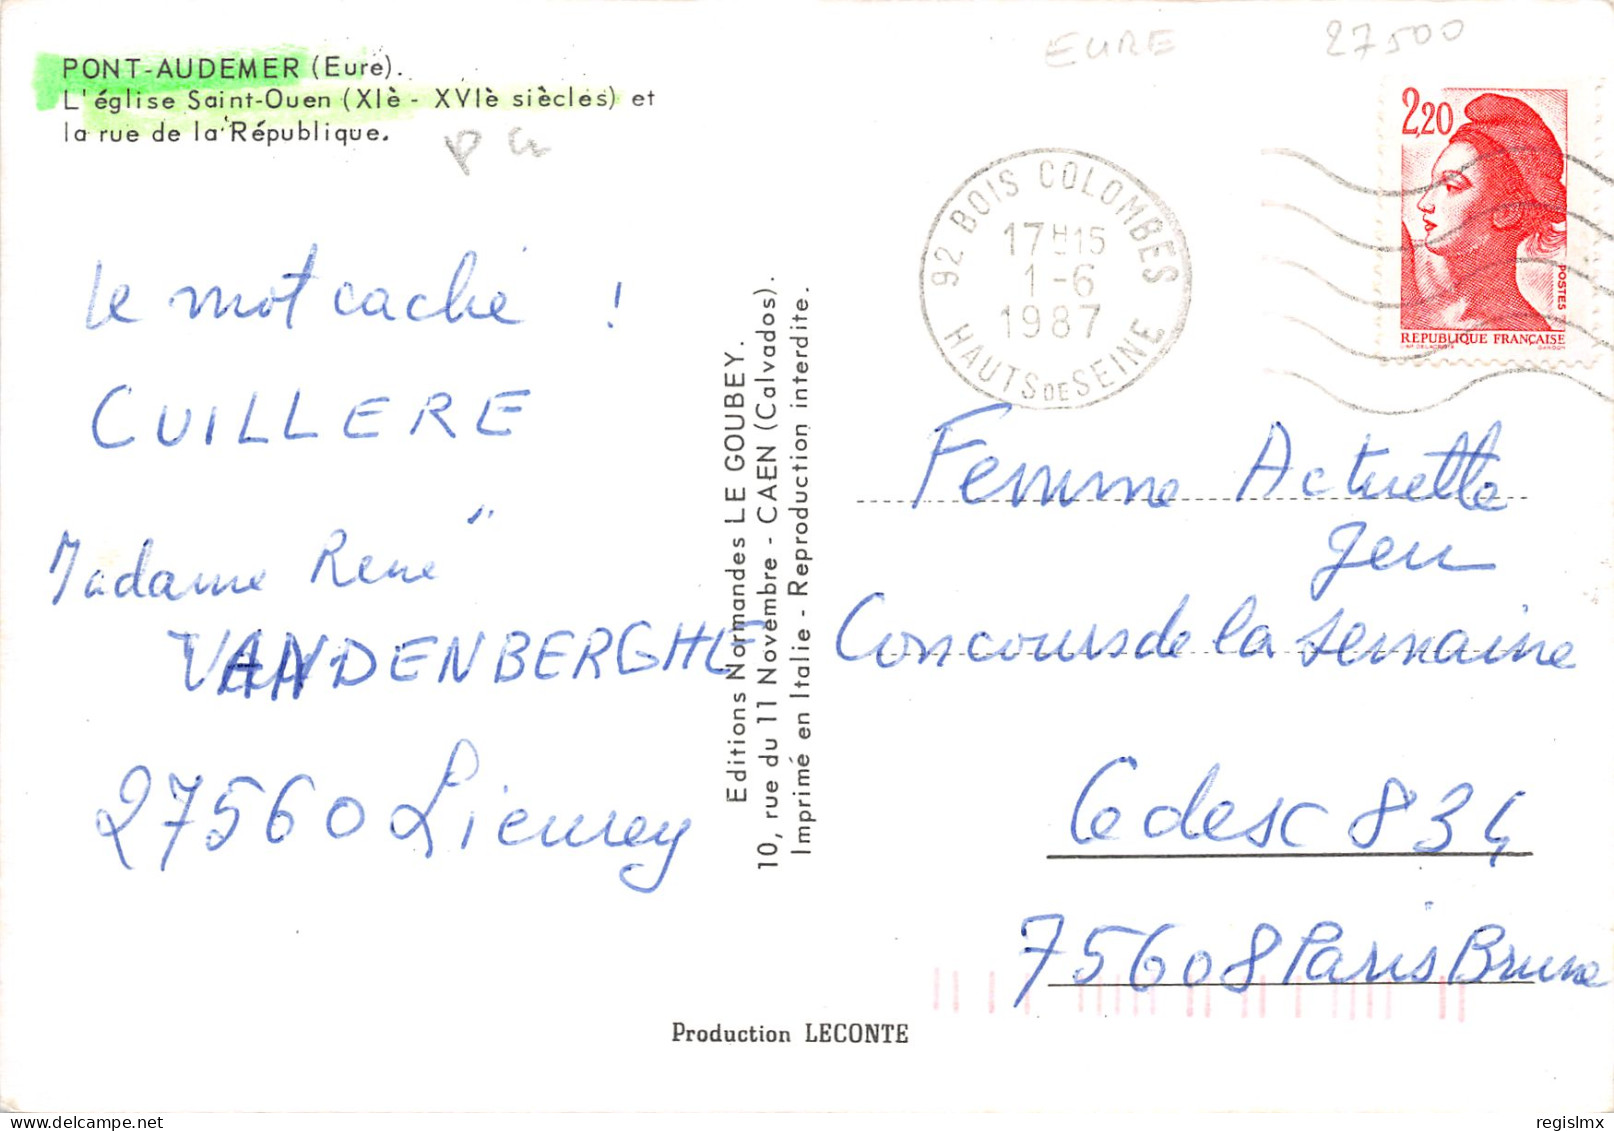 EURE 27500
PONT-AUDEMER (Eure).
L'église Saint-Ouen (XIè - XVIè siècles) et
la rue de la République.
le mot caché !
CUILLERE
Madame René
VANDENBERGHE
27560 Lieurey
Editions Normandes LE GOUBEY.
10, rue du 11 Novembre - CAEN (Calvados).
Imprimé en Italie - Reproduction interdite.
92 BOIS COLOMBES
17H15
1-6
1987
HAUTS DE SEINE
2,20
POSTES
REPUBLIQUE FRANÇAISE
Femme Actuelle
Jeu
Concours de la semaine
Cedesc 834
75608 Paris Brune
Production LECONTE
regislmx